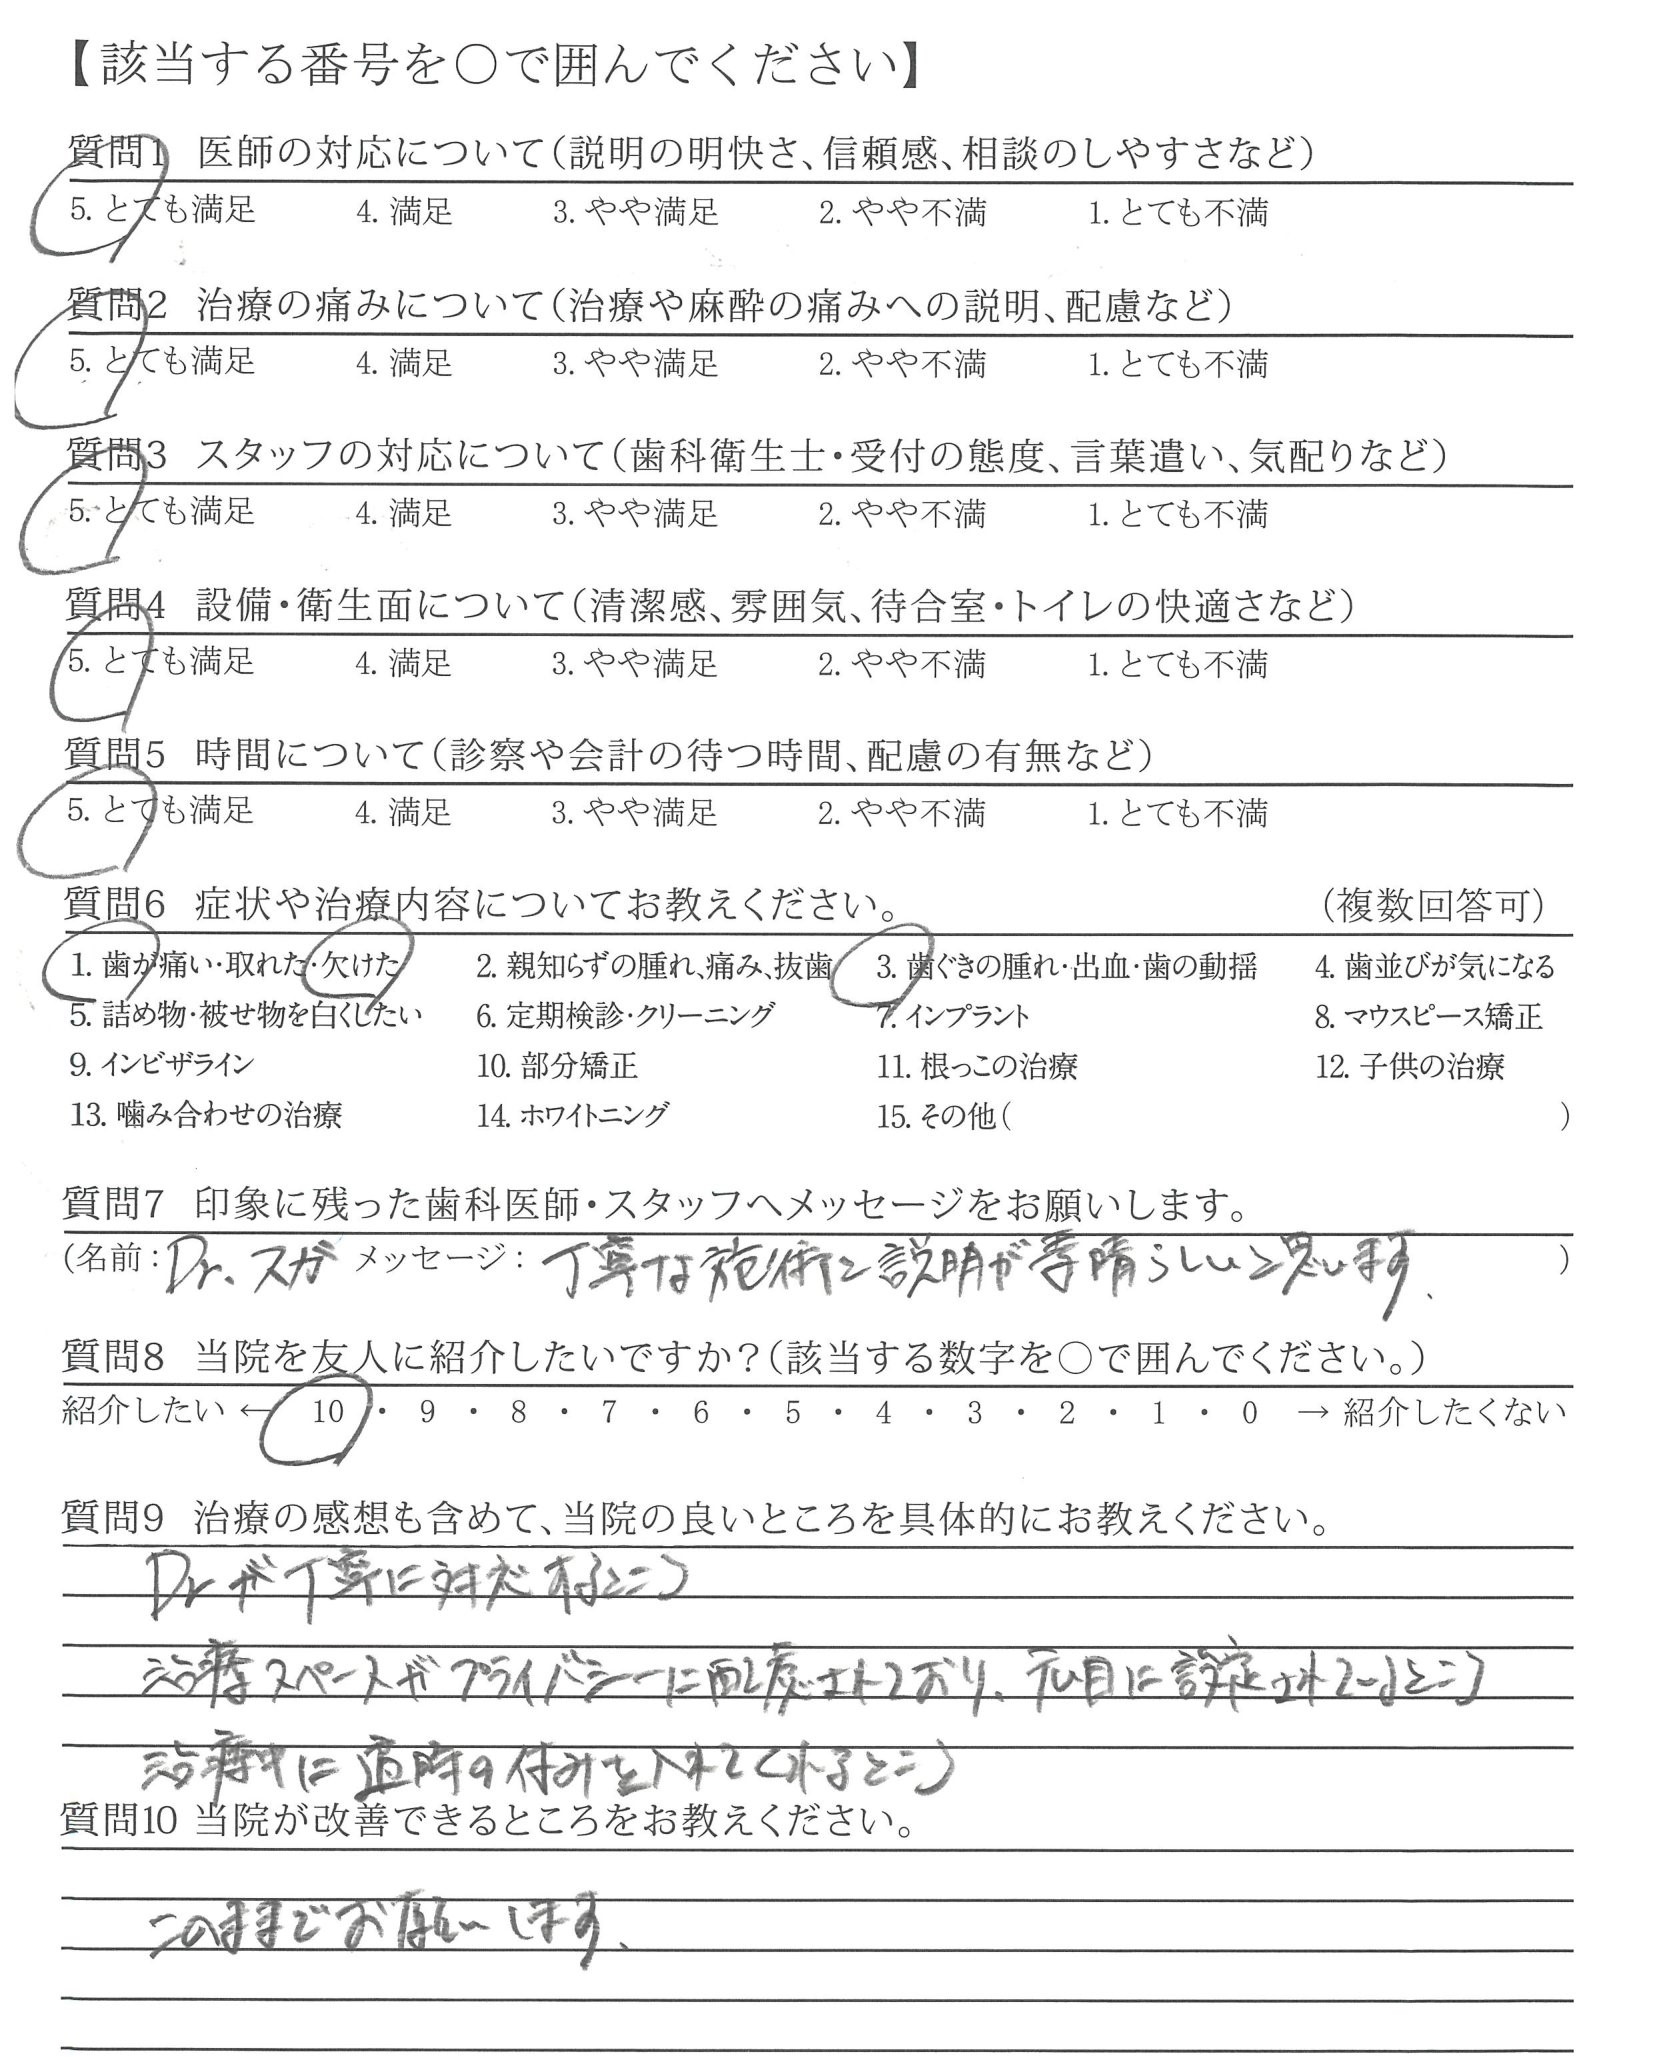 【該当する番号を○で囲んでください】
質問1 医師の対応について(説明の明快さ、信頼感、相談のしやすさなど)
5. とても満足 4. 満足 3. やや満足 2. やや不満 1. とても不満
質問2 治療の痛みについて(治療や麻酔の痛みへの説明、配慮など)
5. とても満足 4. 満足 3. やや満足 2. やや不満 1. とても不満
質問3 スタッフの対応について(歯科衛生士・受付の態度、言葉遣い、気配りなど)
5. とても満足 4. 満足 3. やや満足 2. やや不満 1. とても不満
質問4 設備・衛生面について(清潔感、雰囲気、待合室・トイレの快適さなど)
5. とても満足 4. 満足 3. やや満足 2. やや不満 1. とても不満
質問5 時間について(診察や会計の待つ時間、配慮の有無など)
5. とても満足 4. 満足 3. やや満足 2. やや不満 1. とても不満
質問6 症状や治療内容についてお教えください。 (複数回答可)
1. 歯が痛い・取れた・欠けた 2. 親知らずの腫れ、痛み、抜歯 3. 歯ぐきの腫れ・出血・歯の動揺 4. 歯並びが気になる
5. 詰め物・被せ物を白くしたい 6. 定期検診・クリーニング 7. インプラント 8. マウスピース矯正
9. インビザライン 10. 部分矯正 11. 根っこの治療 12. 子供の治療
13. 噛み合わせの治療 14. ホワイトニング 15. その他( )
質問7 印象に残った歯科医師・スタッフへメッセージをお願いします。
(名前:Dr. スガ メッセージ: 丁寧な施術と説明が素晴らしいと思います、)
質問8 当院を友人に紹介したいですか?(該当する数字を○で囲んでください。)
紹介したい ← 10 ・ 9 ・ 8 ・ 7 ・ 6 ・ 5 ・ 4 ・ 3 ・ 2 ・ 1 ・ 0 → 紹介したくない
質問9 治療の感想も含めて、当院の良いところを具体的にお教えください。
Drが丁寧に対応するところ
治療スペースがプライバシーに配慮されており、広目に設定されているところ
治療中に適時の休みを入れてくれるところ
質問10 当院が改善できるところをお教えください。
このままでお願いします、